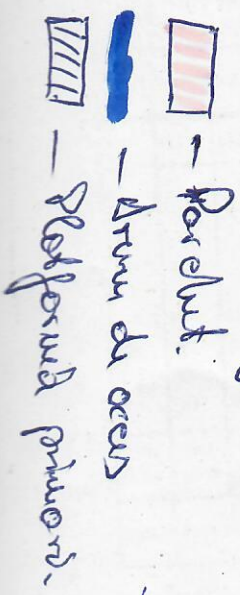 - Parchet.
- Drum de acces
- Platformă primară.